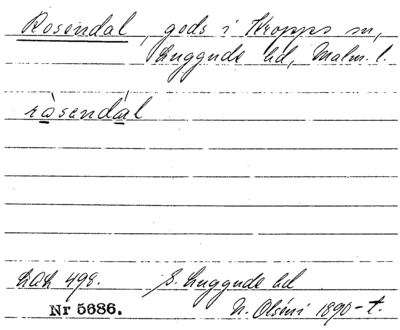 Rosendal, gods i Kropps sn,
Luggude hd, Malm. l.
ràsendàl
LAL 498. S. Luggude hd
Nr 5686. N. Olséni 1890-t.